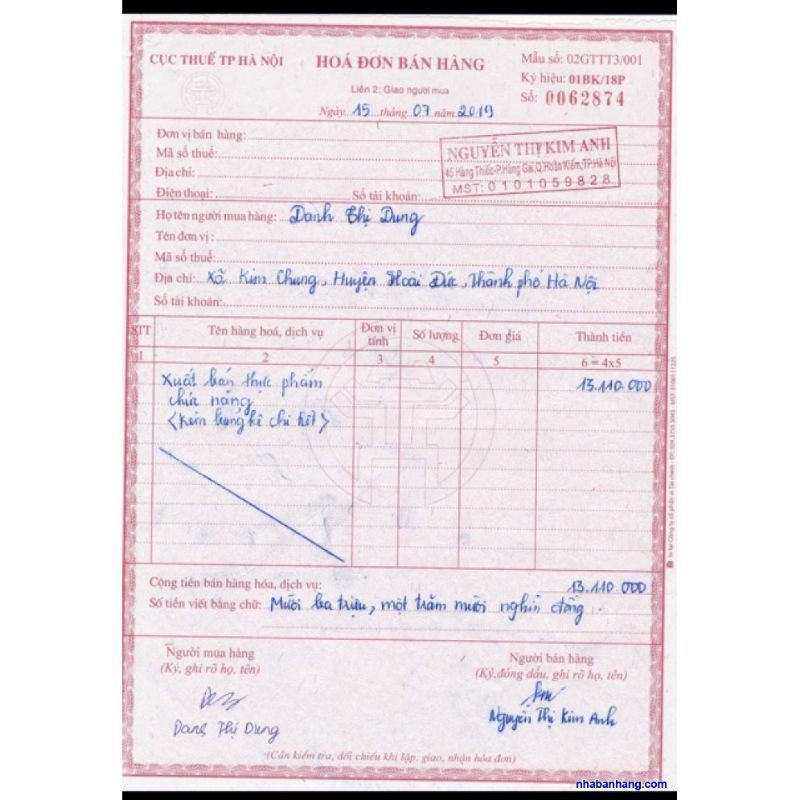 CỤC THUẾ TP HÀ NỘI
HOÁ ĐƠN BÁN HÀNG
Liên 2: Giao người mua
Ngày 15 tháng 07 năm 2019
Mẫu số: 02GTTT3/001
Ký hiệu: 01BK/18P
Số: 0062874
Đơn vị bán hàng:
Mã số thuế:
Địa chỉ:
Điện thoại: Số tài khoản:
NGUYỄN THỊ KIM ANH
45 Hàng Thiếc-P.Hàng Gai,Q.Hoàn Kiếm,TP.Hà Nội
MST: 0101059828
Họ tên người mua hàng: Danh Thị Dung
Tên đơn vị:
Mã số thuế:
Địa chỉ: Xã Kim Chung, Huyện Hoài Đức, Thành phố Hà Nội
Số tài khoản:
STT Tên hàng hoá, dịch vụ Đơn vị tính Số lượng Đơn giá Thành tiền
1 2 3 4 5 6 = 4x5
Xuất bán thực phẩm 13.110.000
chức năng
<Kèm bảng kê chi tiết>
Cộng tiền bán hàng hóa, dịch vụ: 13.110 000
Số tiền viết bằng chữ: Mười ba triệu, một trăm mười nghìn đồng.
Người mua hàng
(Ký, ghi rõ họ, tên)
Người bán hàng
(Ký, đóng dấu, ghi rõ họ, tên)
Thị Dung
Nguyễn Thị Kim Anh
(Cần kiểm tra, đối chiếu khi lập, giao, nhận hóa đơn)
nhabanhang.com